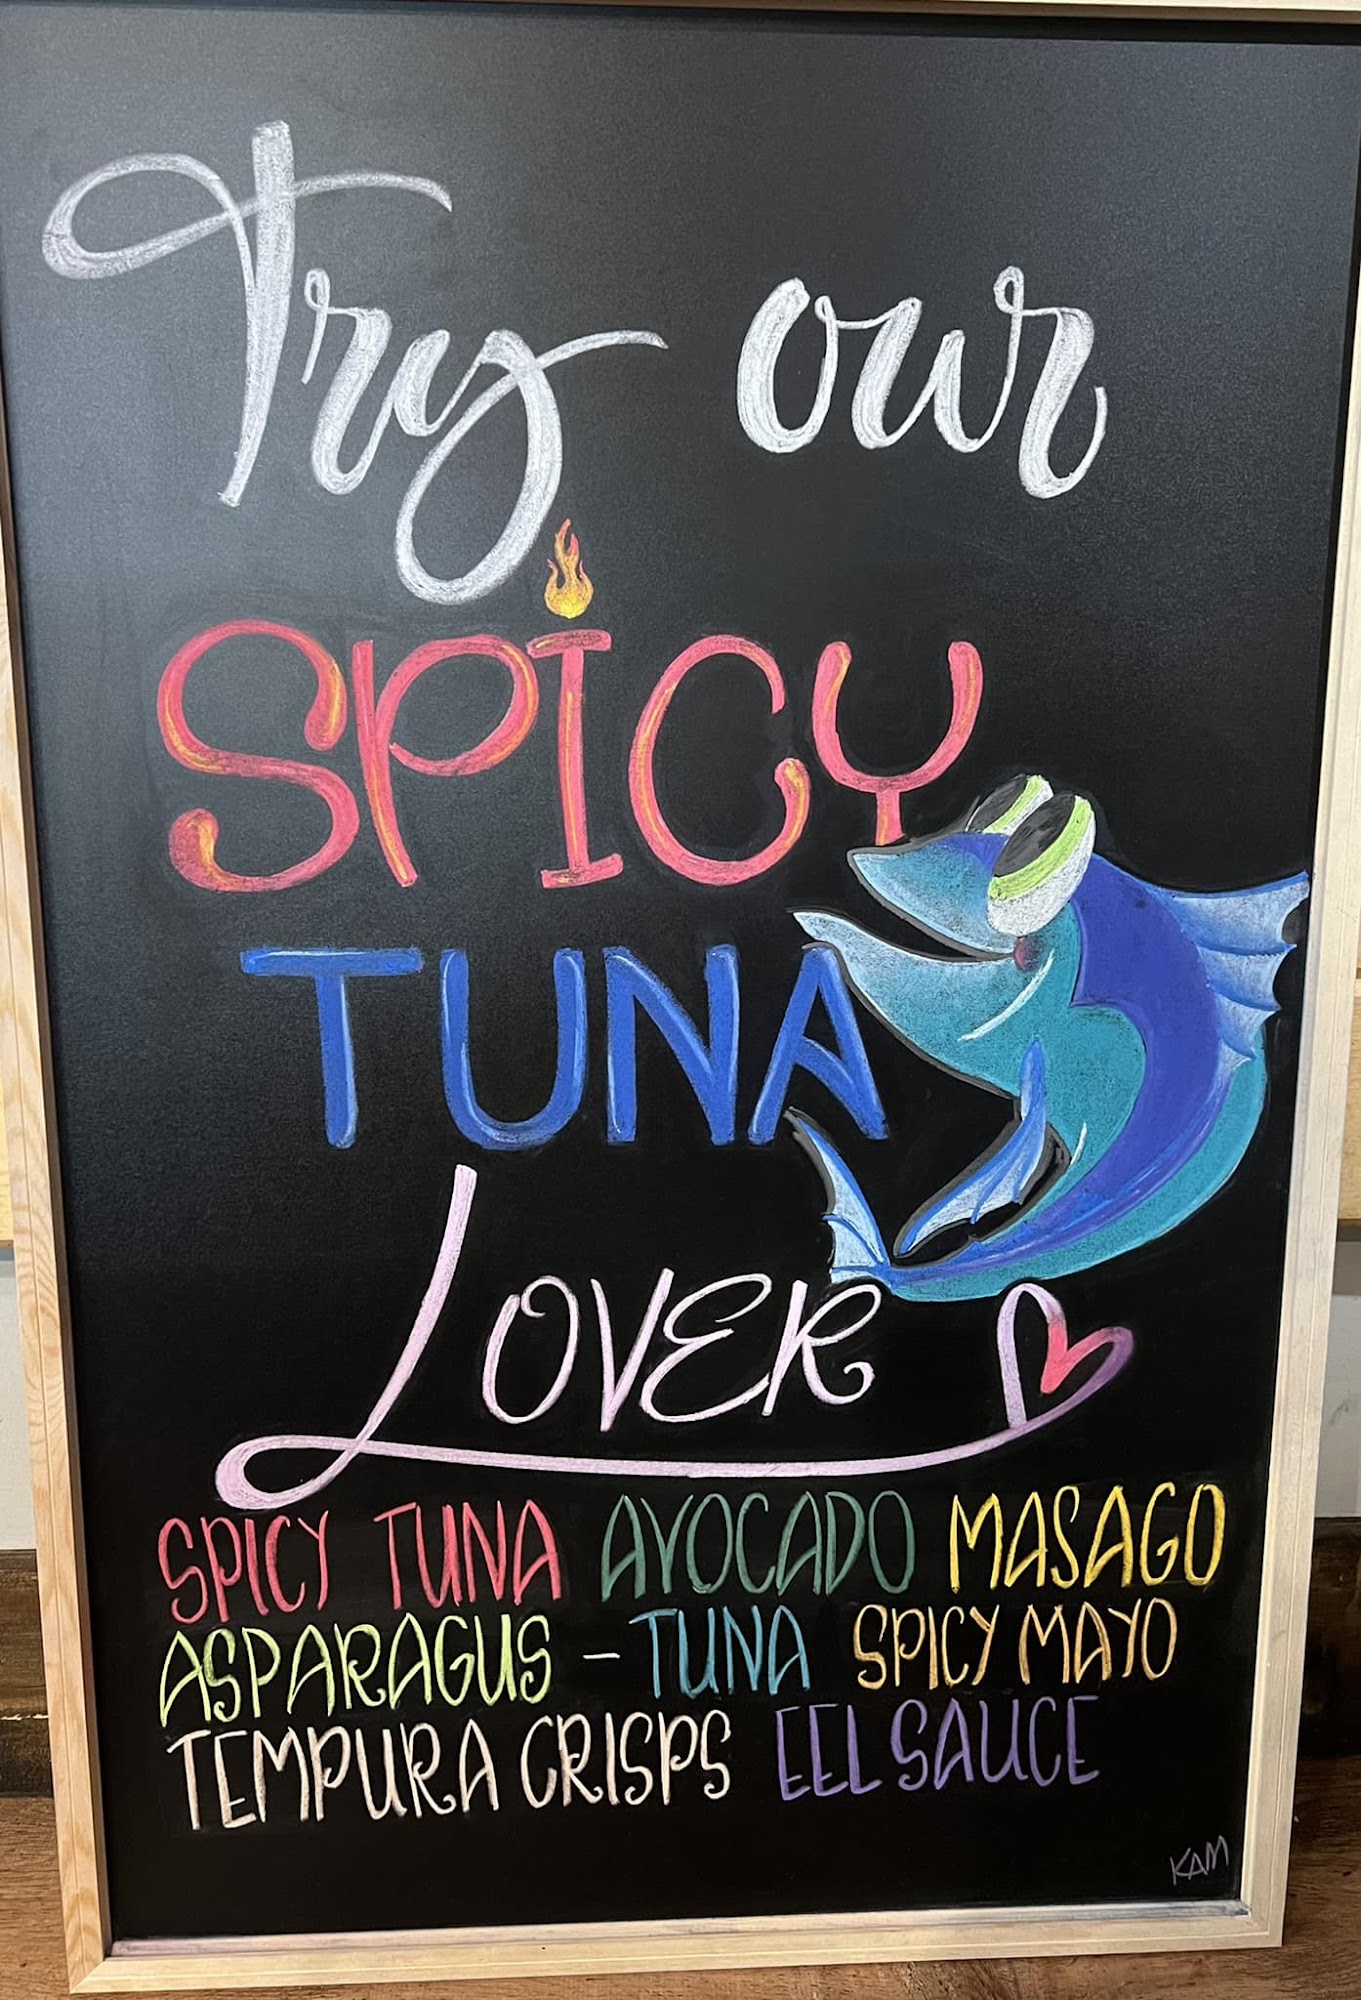 Try our
SPICY
TUNA
LOVER
SPICY TUNA AVOCADO MASAGO
ASPARAGUS - TUNA SPICY MAYO
TEMPURA CRISPS EEL SAUCE
KAM